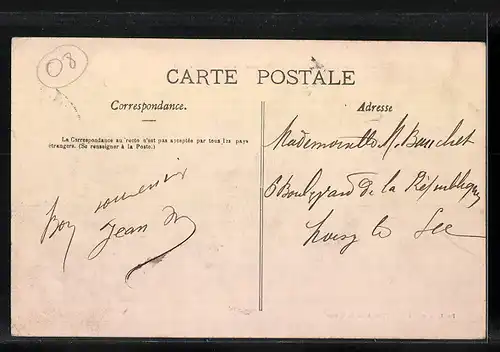 08
CARTE POSTALE
Correspondance.
La Correspondance au recto n'est pas acceptée par tous les pays
étrangers. (Se renseigner à la Poste.)
Bon souvenir
Jean
Adresse
Mademoiselle M. Bauchet
6 Boulevard de la République
Noisy le Sec